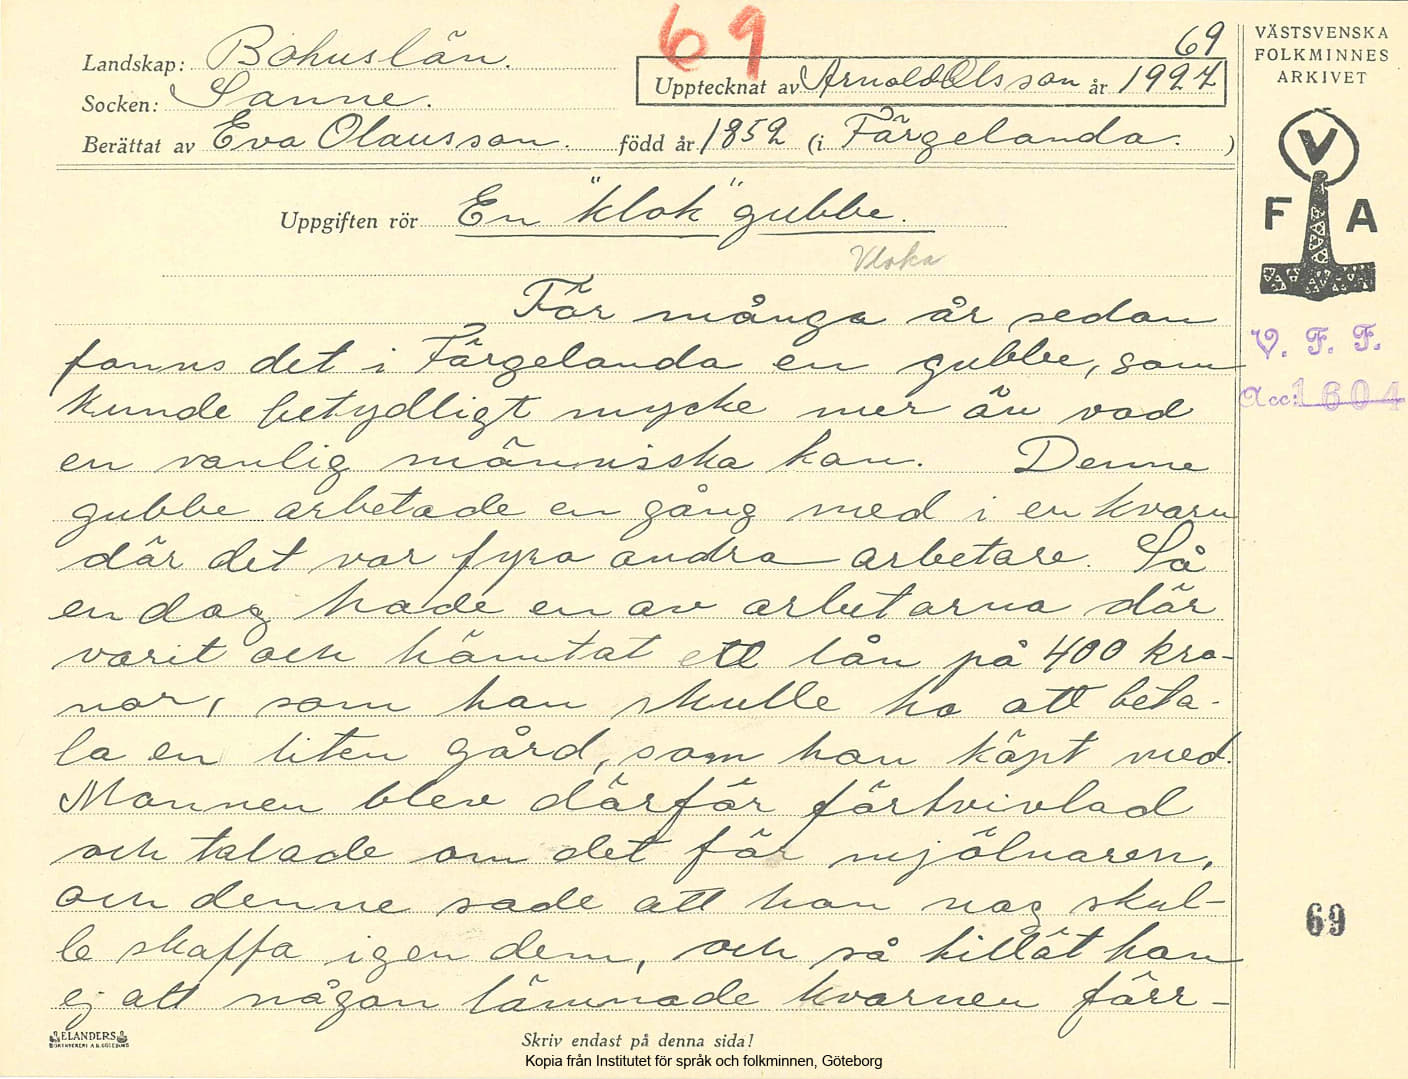 69
69
Landskap: Bohuslän.
Upptecknat av Arnold Olsson år 1927
Socken: Sanne.
Berättat av Eva Olausson. född år 1852 (i Färgelanda. )
Uppgiften rör En "klok" gubbe.
Kloka
För många år sedan
fanns det i Färgelanda en gubbe, som
kunde betydligt mycke mer än vad
en vanlig människa kan. Denne
gubbe arbetade en gång med i en kvarn
där det var fyra andra arbetare. Så
en dag hade en av arbetarna där
varit och hämtat ett lån på 400 kro-
nor, som han skulle ha att beta-
la en liten gård, som han köpt med.
Mannen blev därför förtvivlad
och talade om det för mjölnaren,
och denne sade att han nog skul-
le skaffa igen dem, och så tillät han
ej att någon lämnade kvarnen förr-
ELANDERS
BOKTRYCKERI A.B. GÖTEBORG
Skriv endast på denna sida!
Kopia från Institutet för språk och folkminnen, Göteborg
VÄSTSVENSKA
FOLKMINNES
ARKIVET
V
F A
V. F. F.
Acc: 1604
69